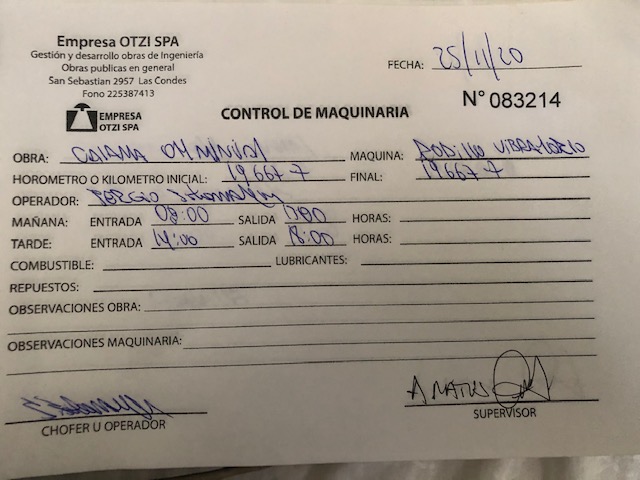 Empresa OTZI SPA
Gestión y desarrollo obras de Ingeniería
Obras publicas en general
San Sebastian 2957 Las Condes
Fono 225387413
EMPRESA
OTZI SPA
CONTROL DE MAQUINARIA
FECHA: 25/11/20
N° 083214
OBRA: MAQUINA: RODILLO VIBRATORIO
HOROMETRO O KILOMETRO INICIAL: 19667 7 FINAL: 19667 7
OPERADOR: SERGIO
MAÑANA: ENTRADA 08:00 SALIDA HORAS:
TARDE: ENTRADA 14:00 SALIDA 18:00 HORAS:
COMBUSTIBLE: LUBRICANTES:
REPUESTOS:
OBSERVACIONES OBRA:
OBSERVACIONES MAQUINARIA:
CHOFER U OPERADOR
SUPERVISOR